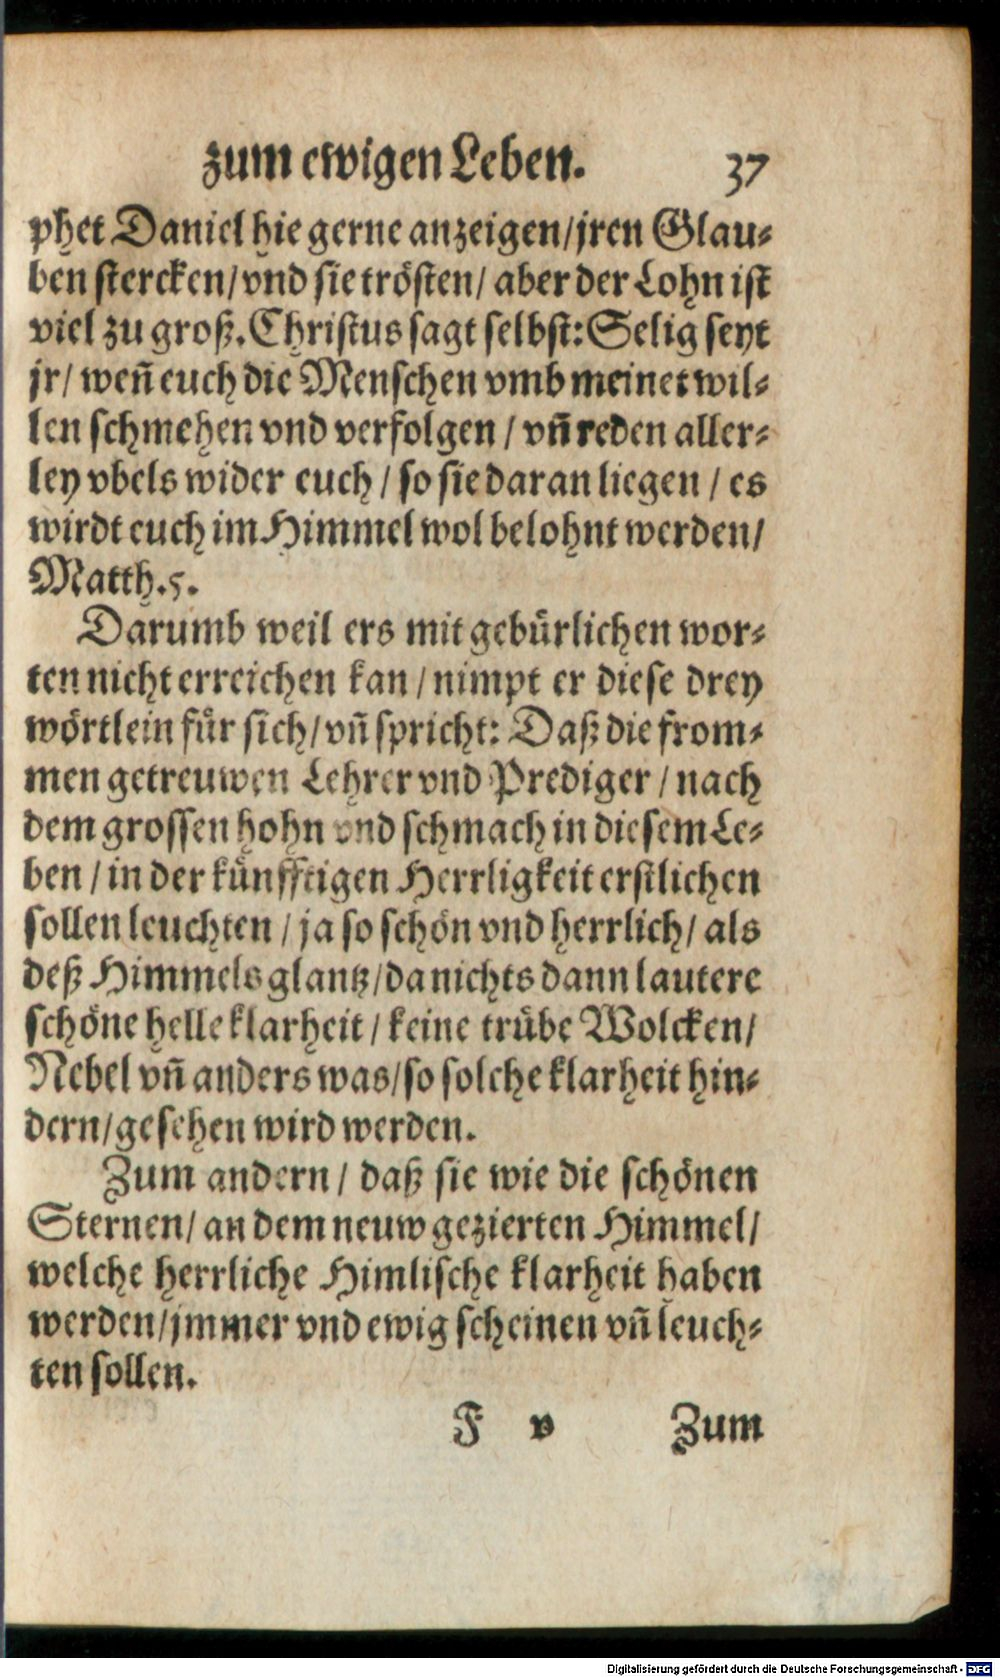 zum ewigen Leben. 37
phet Daniel hie gerne anzeigen/jren Glau⸗
ben stercken/vnd sie trösten/ aber der Lohn ist
viel zu groß. Christus sagt selbst: Selig seyt
jr/ weñ euch die Menschen vmb meinet wil⸗
len schmehen vnd verfolgen / vñ reden aller⸗
ley vbels wider euch / so sie daran liegen / es
wirdt euch im Himmel wol belohnt werden/
Matth. 5.
Darumb weil ers mit gebürlichen wor⸗
ten nicht erreichen kan / nimpt er diese drey
wörtlein für sich/ vñ spricht: Daß die from⸗
men getreuwen Lehrer vnd Prediger / nach
dem grossen hohn vnd schmach in diesem Le⸗
ben / in der künfftigen Herrligkeit erstlichen
sollen leuchten / ja so schön vnd herrlich/ als
deß Himmels glantz/da nichts dann lautere
schöne helle klarheit / keine trübe Wolcken/
Nebel vñ anders was/so solche klarheit hin⸗
dern/gesehen wird werden.
Zum andern / daß sie wie die schönen
Sternen/ an dem neuw gezierten Himmel/
welche herrliche Himlische klarheit haben
werden/jmmer vnd ewig scheinen vñ leuch⸗
ten sollen.
F v Zum
Digitalisierung gefördert durch die Deutsche Forschungsgemeinschaft - DFG